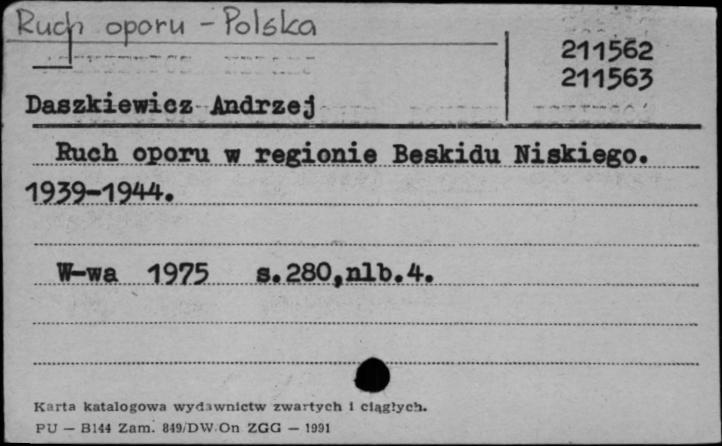 Ruch oporu - Polska
211562
211563
Daszkiewicz Andrzej
Ruch oporu w regionie Beskidu Niskiego.
1939-1944.
W-wa 1975 s.280,nlb.4.
Karta katalogowa wydawnictw zwartych i ciągłych.
PU — B144 Zam. 849/DW.On ZGG — 1991